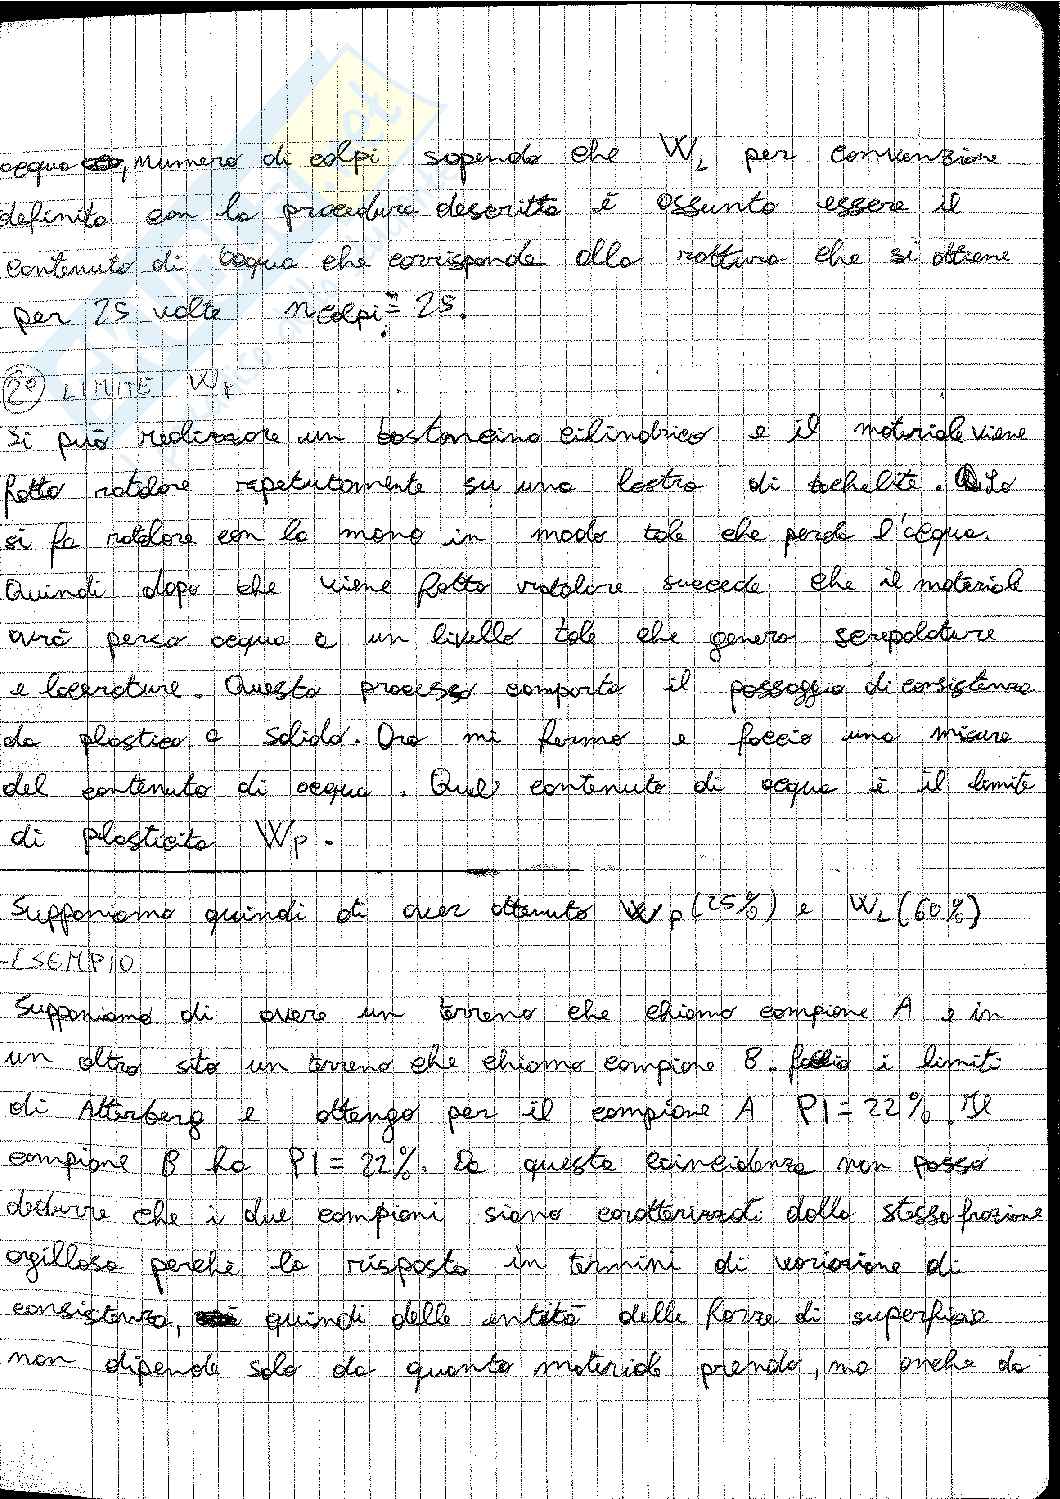 acqua, numero di colpi sapendo che WL per convenzione
definito con la procedura descritta è assunto essere il
contenuto di acqua che corrisponde alla rottura che si ottiene
per 25 volte n colpi = 25.
2° LIMITE Wp
Si può realizzare un bastoncino cilindrico e il materiale viene
fatto rotolare ripetutamente su una lastra di bachelite. Lo
si fa rotolare con la mano in modo tale che perda l'acqua.
Quindi dopo che viene fatto rotolare succede che il materiale
avrà perso acqua a un livello tale che genera screpolature
e lacerature. Questo processo comporta il passaggio di consistenza
da plastico a solido. Ora mi fermo e faccio una misura
del contenuto di acqua. Quel contenuto di acqua è il limite
di plasticità Wp.
Supponiamo quindi di aver ottenuto Wp (25%) e WL (60%)
ESEMPIO
Supponiamo di avere un terreno che chiamo campione A e in
un altro sito un terreno che chiamo campione B. faccio i limiti
di Atterberg e ottengo per il campione A PI = 22%. Il
campione B ha PI = 22%. Da questa coincidenza non posso
dedurre che i due campioni siano caratterizzati dalla stessa frazione
argillosa perché la risposta in termini di variazione di
consistenza, quindi delle entità delle forze di superficie
non dipende solo da quanto materiale prendo, ma anche da